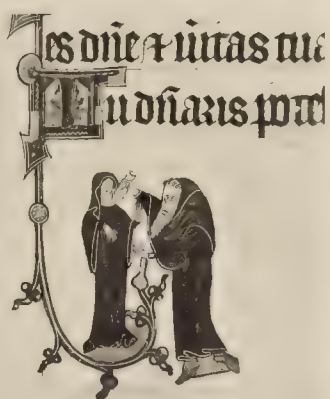 es dñe ⁊ ũitas tua
Tu dñaris pote